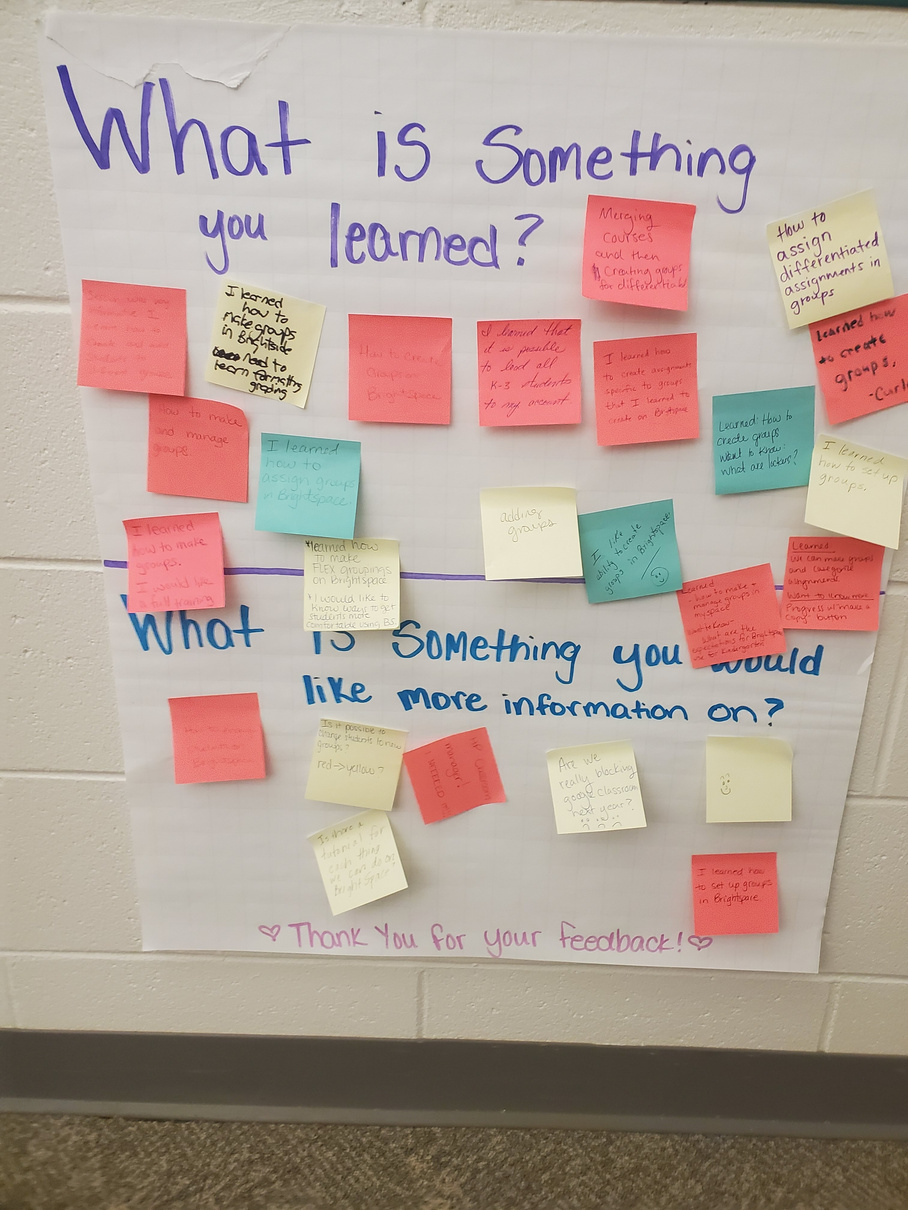 What is Something
you learned?
Merging
courses
and then
Creating groups
for differentiated
How to
assign
differentiated
assignments in
groups
I learned
how to
make groups
in Brightside
need to
learn formatting
grading
How to create
Groups in
Brightspace
I learned that
it is possible
to load all
K-3 students
to my account
I learned how
to create assignments
specific to groups
that I learned to
create on Britspace
Learned how
to create
groups.
How to make
and manage
groups.
I learned
how to
assign groups
in Brightspace
Learned: How to
create groups
Want to know:
What are lockers?
I learned
how to set up
groups.
I learned
how to make
groups.
I would like
a full training
*learned how
to make
FLEX groupings
on Brightspace
*I would like to
know ways to get
students more
comfortable using BS
adding
groups
I like
ability to create
groups in Brightspace
Learned
- how to make +
manage groups in
myspace
What are the
expectations for Brightspace
for Kindergarten?
Learned:
We can make groups
assignments
Want to know more:
Progress w/ make a
copy button
What is Something you would
like more information on?
Is it possible to
change students to new
groups?
red->yellow?
Are we
really blocking
google classroom
next year?
Is there a
tutorial for
each thing
we can do on
BrightSpace?
I learned how
to set up groups
in Brightspace
♡ Thank You for your feedback! ♡